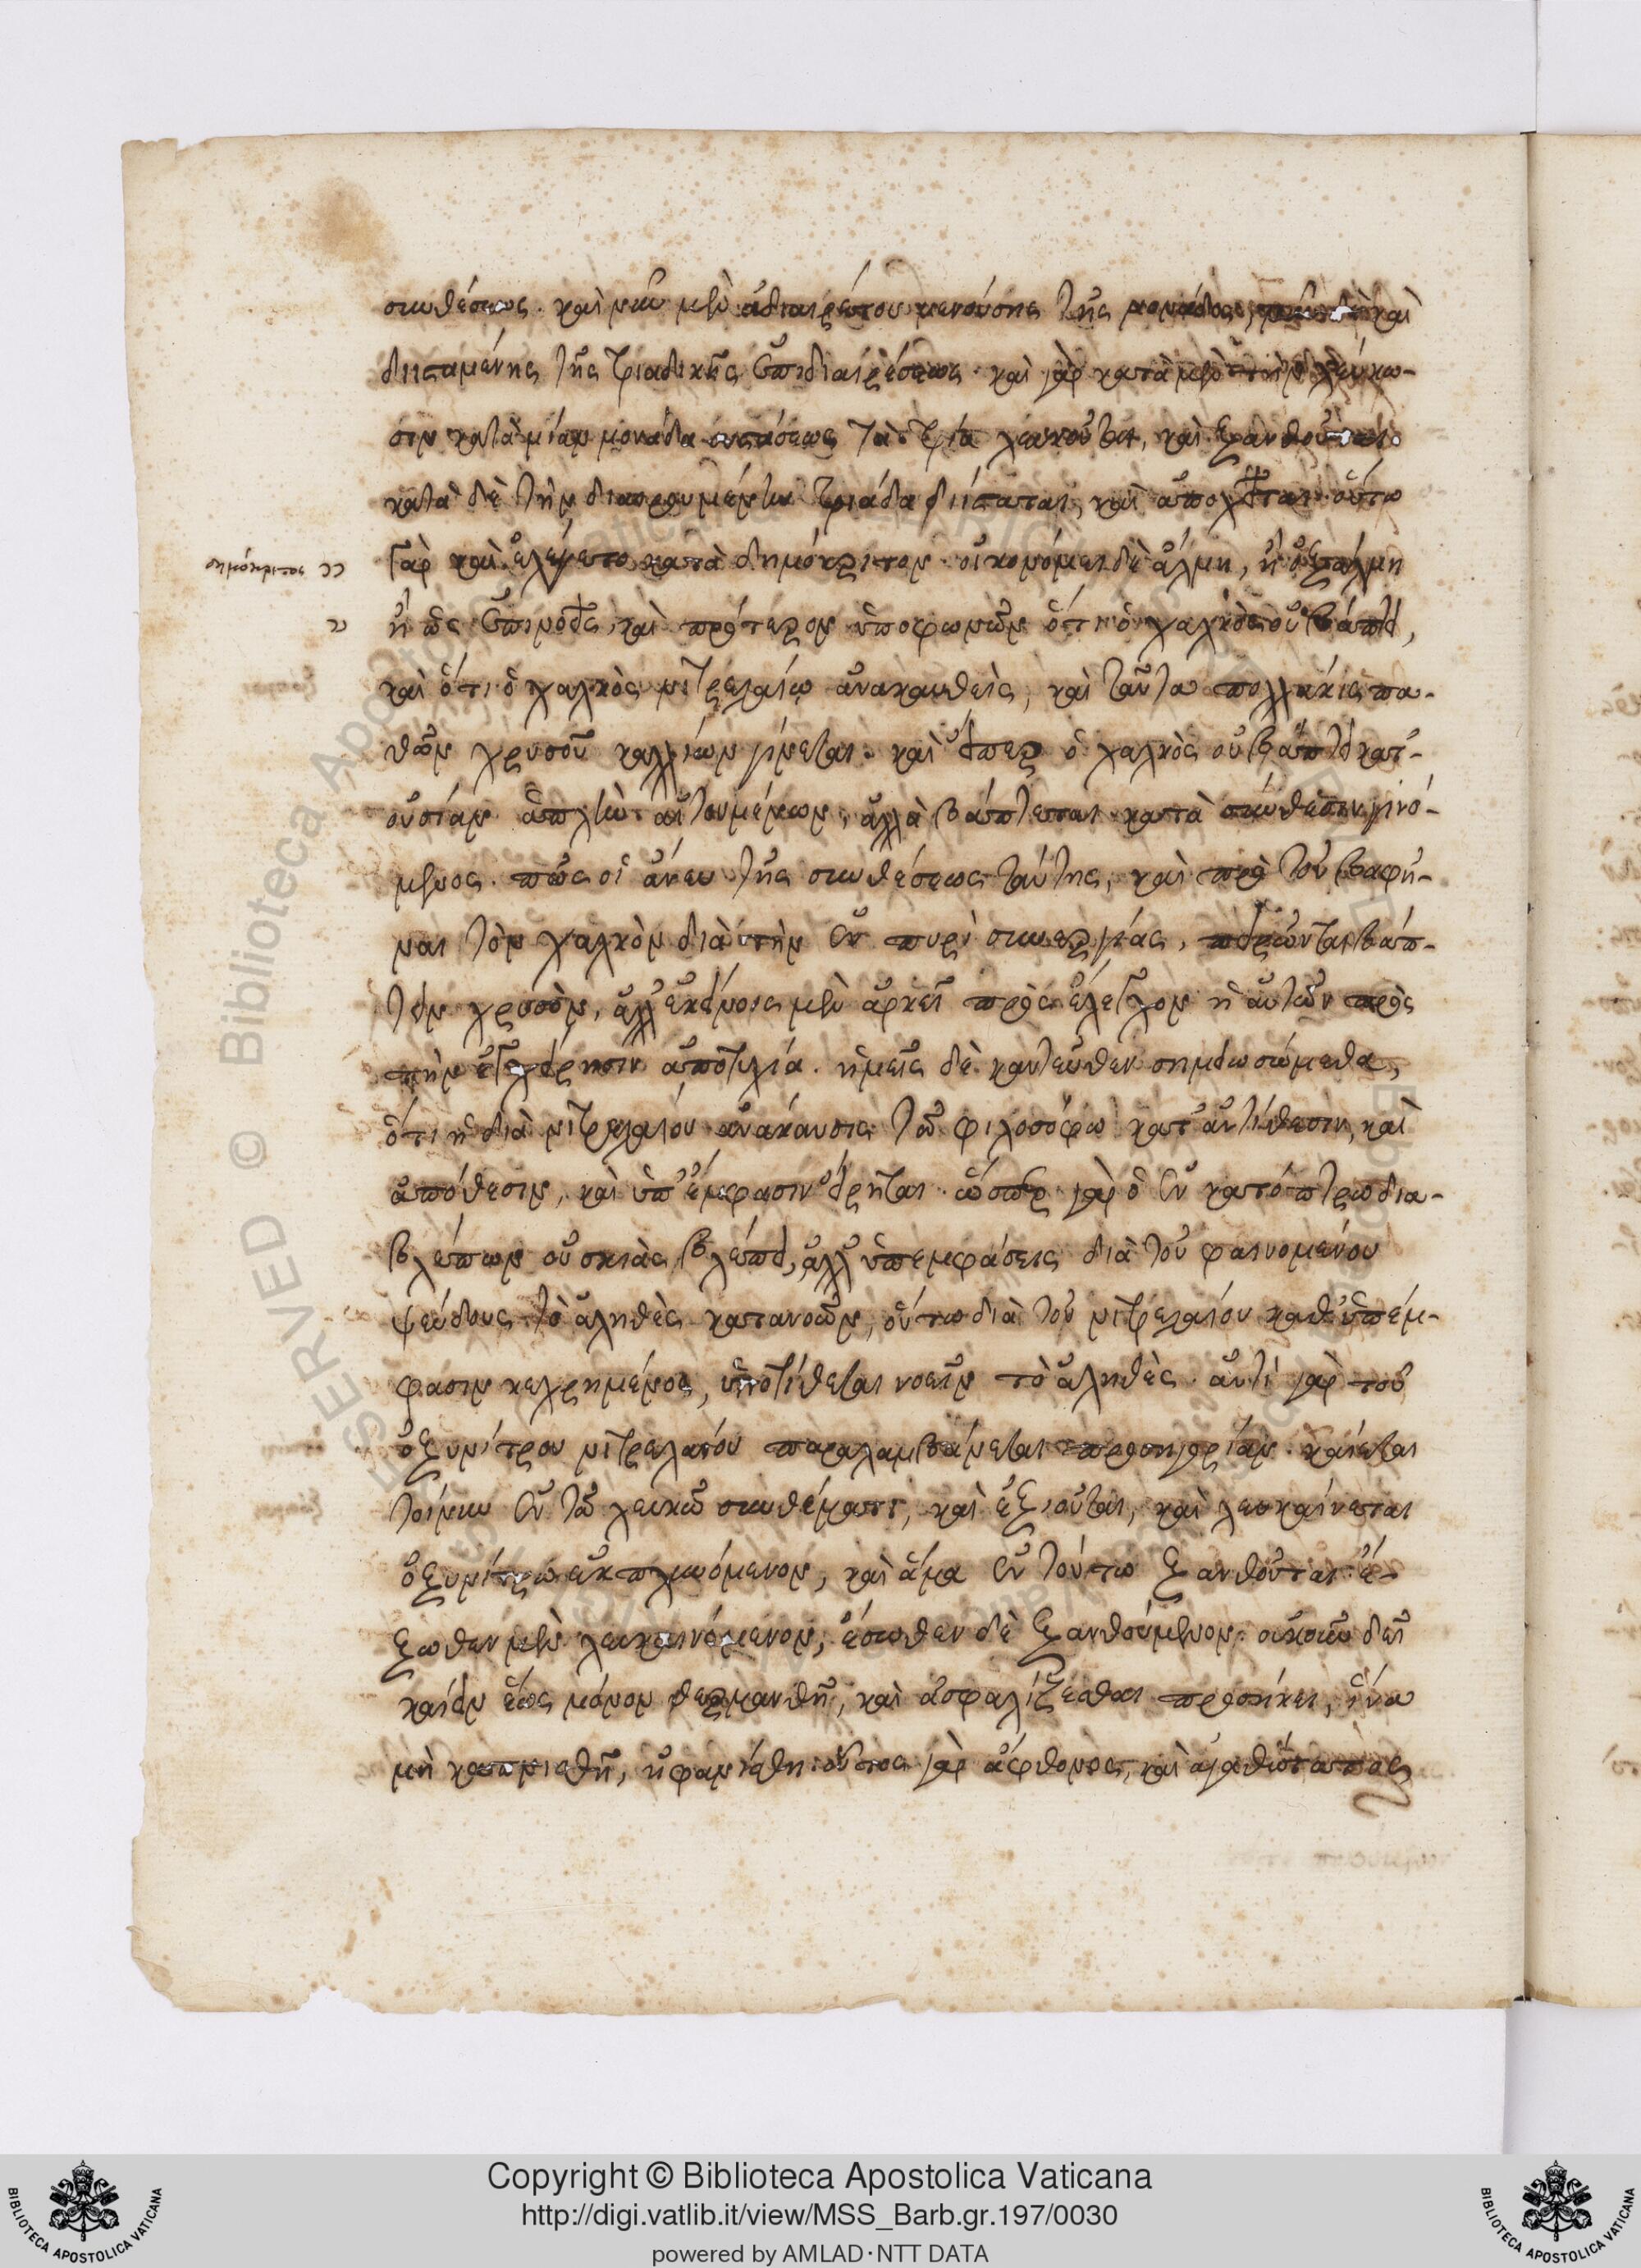 συνθέσεως. καὶ νῦν μὲν ἀδιαιρέτου μενούσης τῆς μονάδος, καὶ
διισταμένης τῆς τριαδικῆς ἐπιδιαιρέσεως. καὶ γὰρ κατὰ μὲν τὴν λεύκω-
σιν κατὰ μίαν μονάδα συστάσεως τὰ τρία λευκοῦται, καὶ ξανθοῦται.
κατὰ δὲ τὴν διαιρουμένην τριάδα διίσταται, καὶ οὕτω
Δημόκριτος
γὰρ καὶ ἐλέγετο κατὰ Δημόκριτον. οἰκονόμει δὲ ἅλμῃ, ἢ ὀξάλμῃ
ἢ ὡς ἐπινοεῖς, καὶ πρότερον ὑποφωνῶν ὅτι ὁ χαλκὸς οὐ βάπτει,
καὶ ὅτι ὁ χαλκὸς νιτρελαίῳ ἀνακαυθεὶς, καὶ ταῦτα πολλάκις πα-
θὼν χρυσοῦ καλλίων γίνεται. καὶ εἴπερ ὁ χαλκὸς οὐ βάπτει κατ'
οὐσίαν ἁπλῶν αἰτουμένων, ἀλλὰ βάπτεται κατὰ σύνθεσιν γινό-
μενος. πῶς οἱ ἄνευ τῆς συνθέσεως ταύτης, καὶ πρὸ τοῦ βαφῆ-
ναι τὸν χαλκὸν διὰ τὴν ἐν πυρὶ συνεργίας, πειρῶνται βάπ-
τειν χρυσὸν, ἀλλ' ἐκείνοις μὲν ἀρκεῖ πρὸς ἔλεγχον ἡ αὐτῶν πρὸς
τὴν ἐγχείρησιν ἀποτυχία. ἡμεῖς δὲ κἀντεῦθεν σημειωσώμεθα,
ὅτι ἡ διὰ νιτρελαίου ἀνάκαυσις τῷ φιλοσόφῳ κατ' ἀντίθεσιν, καὶ
ἀπόθεσιν, καὶ ὑπ' ἔμφασιν εἴρηται. ὥσπερ γὰρ ὁ ἐν κατόπτρῳ δια-
βλέπων οὐ σκιὰς βλέπει, ἀλλ' ὑπεμφάσεις διὰ τοῦ φαινομένου
ψεύδους τὸ ἀληθὲς κατανοῶν, οὕτω διὰ τοῦ νιτρελαίου καθ' ὑπέμ-
φασιν κεχρημένος, ὑποτίθεται νοεῖν τὸ ἀληθὲς. ἀντὶ γὰρ τοῦ
ὀξυνίτρου νιτρελαίου παραλαμβάνεται προσηγορίαν. καίεται
τοίνυν ἐν τῷ λευκῷ συνθέματι, καὶ ἐξιοῦται, καὶ λευκαίνεται
ὀξυνίτρῳ ἐκπλυνόμενον, καὶ ἅμα ἐν τούτῳ ξανθοῦται. ἔ-
ξωθεν μὲν λευκαινόμενον, ἔσωθεν δὲ ξανθούμενον. οὐκοῦν δεῖ
καίειν ἕως μόνον θερμανθῇ, καὶ ἀσφαλίζεσθαι προσήκει, ἵνα
μὴ καπνισθῇ, ἠφανίσθη. οὗτος γὰρ ἄφθονος, καὶ ἀγαθώτατος
Copyright © Biblioteca Apostolica Vaticana
http://digi.vatlib.it/view/MSS_Barb.gr.197/0030
powered by AMLAD·NTT DATA
BIBLIOTECA APOSTOLICA VATICANA
BIBLIOTECA APOSTOLICA VATICANA